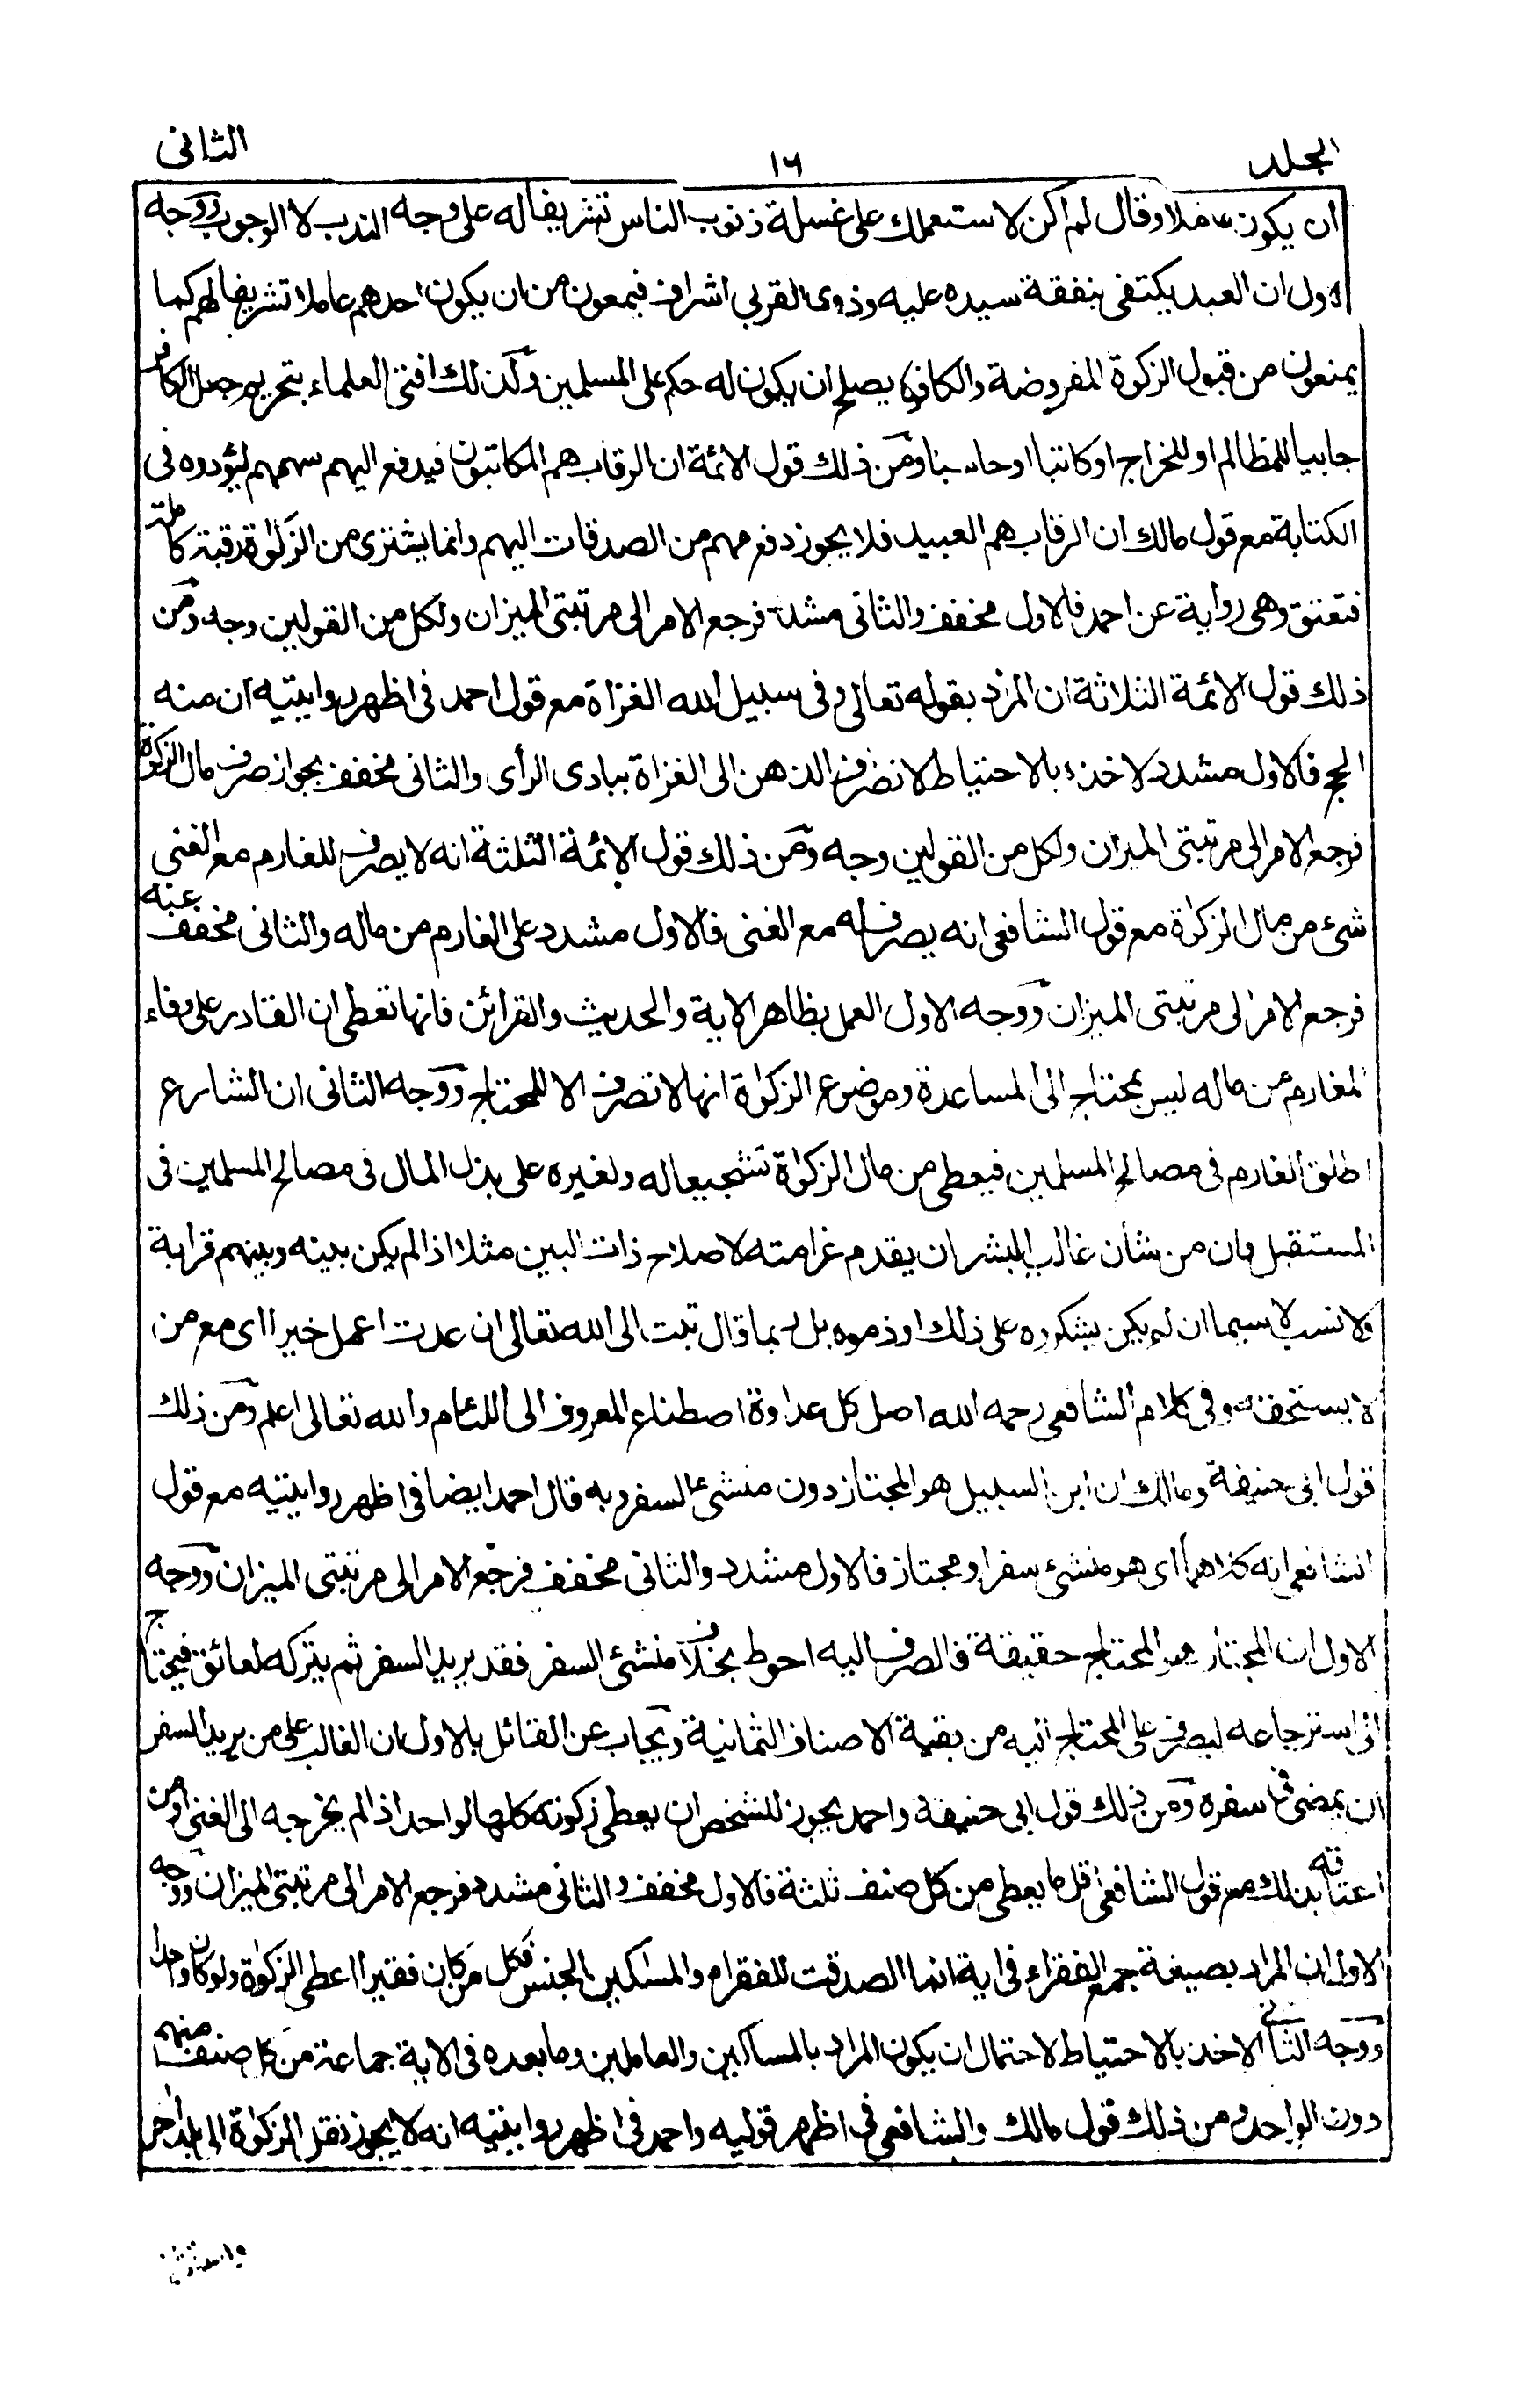 الجلد ١٦ الثانى
ان يكون عاملا وقال لم اكن لاستعملك على غسلة ذنوب الناس تشريفا له على وجه الندب لا الوجوب ووجه
الاول ان العبد يكتفى بنفقة سيده عليه وذوى القربى اشراف فيمعون من ان يكون احدهم عاملا تشريفا لهم كما
يمنعون من قبول الزكوة المفروضة والكافر لا يصلح ان يكون له حكم على المسلمين وكذلك افتى العلماء بتحريم جعل الكافر
جابيا للمظالم او للخراج او كاتبا او حاسبا ومن ذلك قول الائمة ان الرقاب هم المكاتبون فيدفع اليهم سهمهم ليؤدوه فى
الكتابة مع قول مالك ان الرقاب هم العبيد فلا يجوز دفع سهم من الصدقات اليهم وانما يشترى من الزكوة رقبة كاملة
فتعتق وهى رواية عن احمد فالاول مخفف والثانى مشدد فرجع الامر الى مرتبتى الميزان ولكل من القولين وجه ومن
ذلك قول الائمة الثلاثة ان المراد بقوله تعالى وفى سبيل الله الغزاة مع قول احمد فى اظهر روايتيه ان منه
الحج فالاول مشدد لاخذه بالاحتياط لانصراف الذهن الى الغزاة ببادى الرأى والثانى مخفف بجواز صرف مال الزكوة
فرجع الامر الى مرتبتى الميزان ولكل من القولين وجه ومن ذلك قول الائمة الثلثة انه لا يصرف للغارم مع الغنى
شئ من مال الزكوة مع قول الشافعى انه يصرف له مع الغنى فالاول مشدد على الغارم من ماله والثانى مخفف عنه
فرجع الامر الى مرتبتى الميزان ووجه الاول العمل بظاهر الاية والحديث والقرائن فانها تعطى ان القادر على وفاء
المغارم من ماله ليس بمحتاج الى المساعدة وموضوع الزكوة انها لا تصرف الا للمحتاج ووجه الثانى ان الشارع
اطلق الغارم فى مصالح المسلمين فيعطى من مال الزكوة تشجيعا له ولغيره على بذل المال فى مصالح المسلمين فى
المستقبل فان من شأن غالب البشر ان يقدم غرامته لاصلاح ذات البين مثلا اذا لم يكن بينه وبينهم قرابة
ولا نسب لا سيما ان لم يكن يشكروه على ذلك او ذموه بل ربما قال تبت الى الله تعالى ان عدت اعمل خيرا اى مع من
لا يستحقه وفى كلام الشافعى رحمه الله اصل كل عداوة اصطناع المعروف الى اللئام والله تعالى اعلم ومن ذلك
قول ابى حنيفة ومالك ان ابن السبيل هو المجتاز دون منشئ السفر وبه قال احمد ايضا فى اظهر روايتيه مع قول
الشافعى انه كلاهما اى هو منشئ سفر او مجتاز فالاول مشدد والثانى مخفف فرجع الامر الى مرتبتى الميزان ووجه
الاول ان المجتاز هو المحتاج حقيقة فالصرف اليه احوط بخلاف منشئ السفر فقد يريد السفر ثم يتركه لعائق فيحتاج
الى استرجاعه ليصرف على المحتاج اليه من بقية الاصناف الثمانية ويجاب عن القائل بالاول بان الغالب على من يريد السفر
ان يمضى فى سفره ومن ذلك قول ابى حنيفة واحمد يجوز للشخص ان يعطى زكوته كلها لواحد اذا لم يخرجه الى الغنى او من
اعتاقه بذلك مع قول الشافعى اقل ما يعطى من كل صنف ثلثة فالاول مخفف والثانى مشدد فرجع الامر الى مرتبتى الميزان ووجه
الاول ان المراد بصيغة جمع الفقراء فى اية انما الصدقت للفقراء والمسكين الجنس فكل من كان فقيرا اعطى الزكوة ولو كان واحدا
ووجه الثانى الاخذ بالاحتياط لاحتمال ان يكون المراد بالمساكين والعاملين وما بعده فى الاية جماعة من كل صنف منهم
دون الواحد ومن ذلك قول مالك والشافعى فى اظهر قوليه واحمد فى اظهر روايتيه انه لا يجوز نقل الزكوة الى بلد اخر